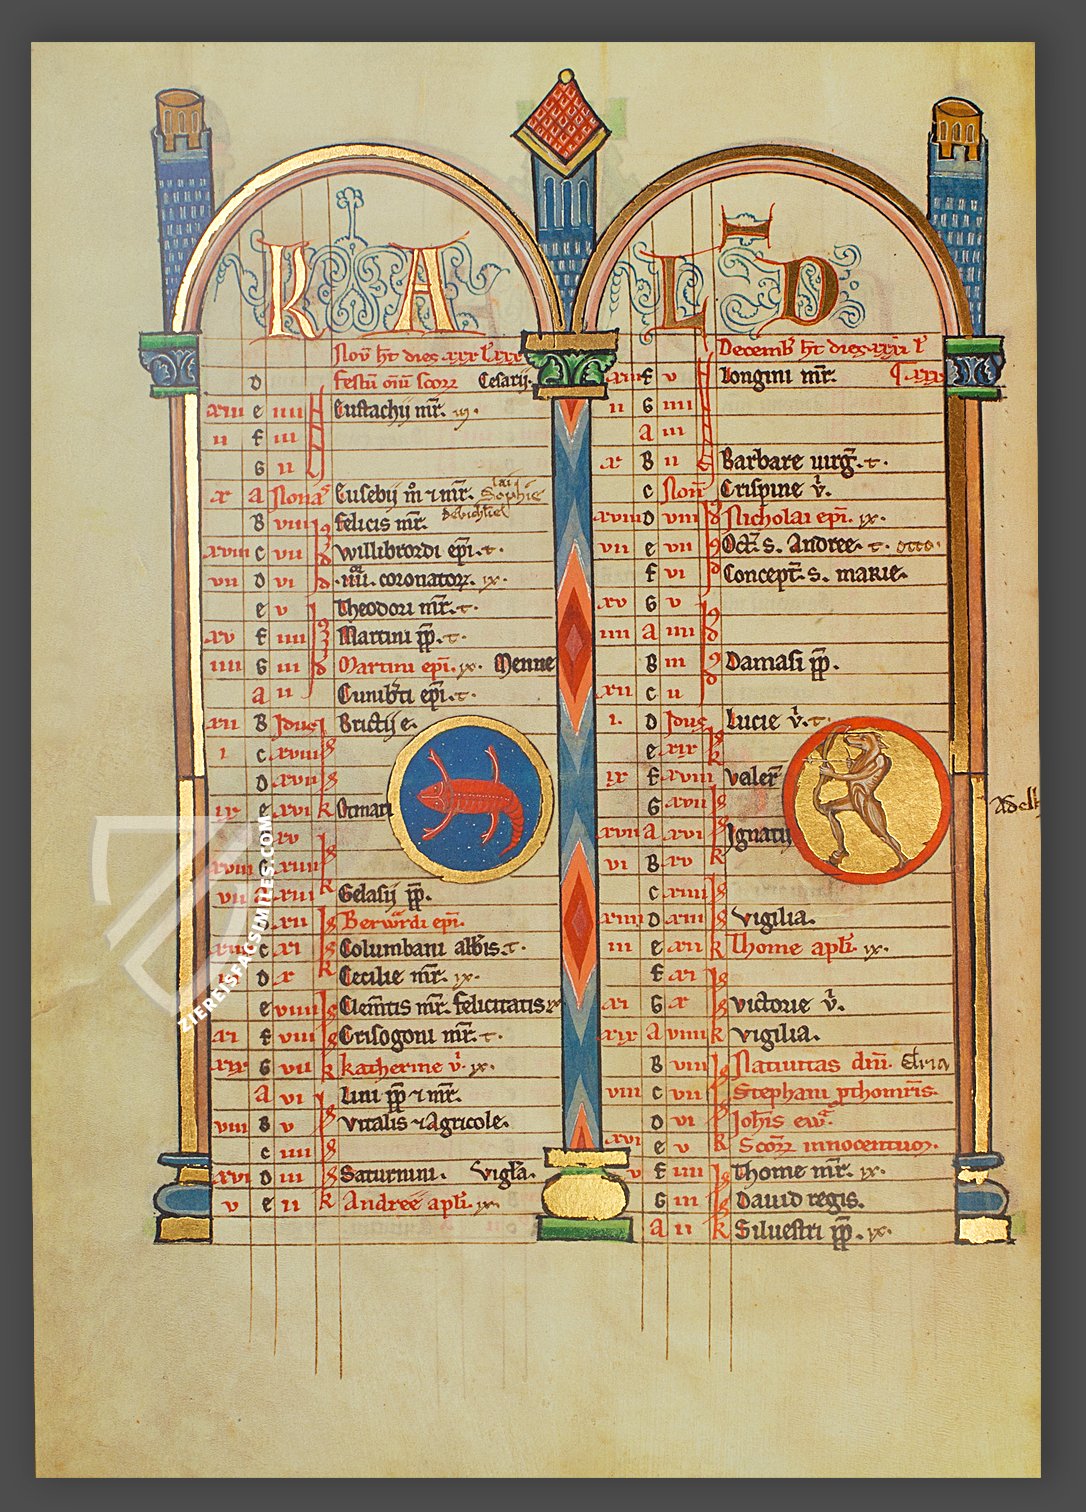 KA
Nov̄ ht dies xxx l᷑ xxx
D festū om̄iū scorz Cesarij.
xiii e iiii Eustachij mr̄. iij.
ii f iii
G ii
x a Nonas Eusebij mͦ ⁊ mr̄. Sophie
B viii felicis mr̄.
xviii c vii willibrordi ep̄i. t.
vii D vi .iiiiͦʳ. coronatorz. ix.
e v Theodori mr̄. t.
xv f iiii Martini p̄p. t.
iiii G iii Martini ep̄i. ix. Menne
a ii Cunib̄ti ep̄i. t.
xii B Idus Brictij e.
i c xviii
D xvii
ix e xvi k Otmari
f xv
xviii G xiiii
vii a xiii k Gelasij p̄p.
B xii Berwardi ep̄i.
c xi Columbani abb̄is. t.
D x k Cecilie mr̄. ix.
e viiii Clem̄tis mr̄. felicitatis ix
xi f viii Grisogoni mr̄. t.
xix G vii k katherine v̇. ix.
a vi Lini p̄p ⁊ mr̄.
viii B v vitalis ⁊ Agricole.
c iiii
xvi D iii Saturnini. vigl̄a.
v e ii k Andree apl̄i. ix.
L D
Decemb̄ ht dies xxxi l᷑
xiii f v Longini mr̄.
ii G iiii
a iii
x B ii Barbare uirḡ. t.
c Noñ Crispine v̇.
xviii D viii Nicholai ep̄i. ix.
vii e vii Oct̄. s. Andree. t. otto.
f vi Concept̄. s. marie.
xv G v
iiii a iiii
B iii Damasi p̄p.
xii c ii
i. D Idus Lucie v̇. t.
e xix k
ix f xviii valer̄
G xvii
xvii a xvi Ignatij
vi B xv k
c xiiii
xiiii D xiii vigilia.
iii e xii k Thome apl̄i. ix.
f xi
xi G x victorie v̇.
xix a viiii k vigilia.
B viii Natiuitas dn̄i.
viii c vii Stephani p̱thom̄ris.
D vi Joh̄is ew̄.
xvi e v k Scorz innocentuoꝛ.
v f iiii Thome mr̄. ix.
G iii Dauid regis.
a ii k Siluestri p̄p. ix.
ZIEREISFACSIMILES.COM